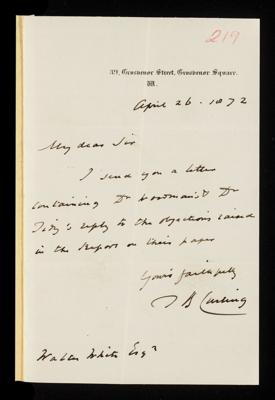 219
39, Grosvenor Street, Grosvenor Square.
W.
April 26. 1872
My dear Sir
I send you a letter
containing Dr Woodman & Dr
Tidy's reply to the objections raised
in the Report on their paper
Yours faithfully
T B Curling
Walter White Esqr